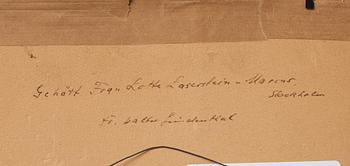 Gehört Frau Lotte Laserstein-Marcus
Stockholm
fr. Walter Lindenthal